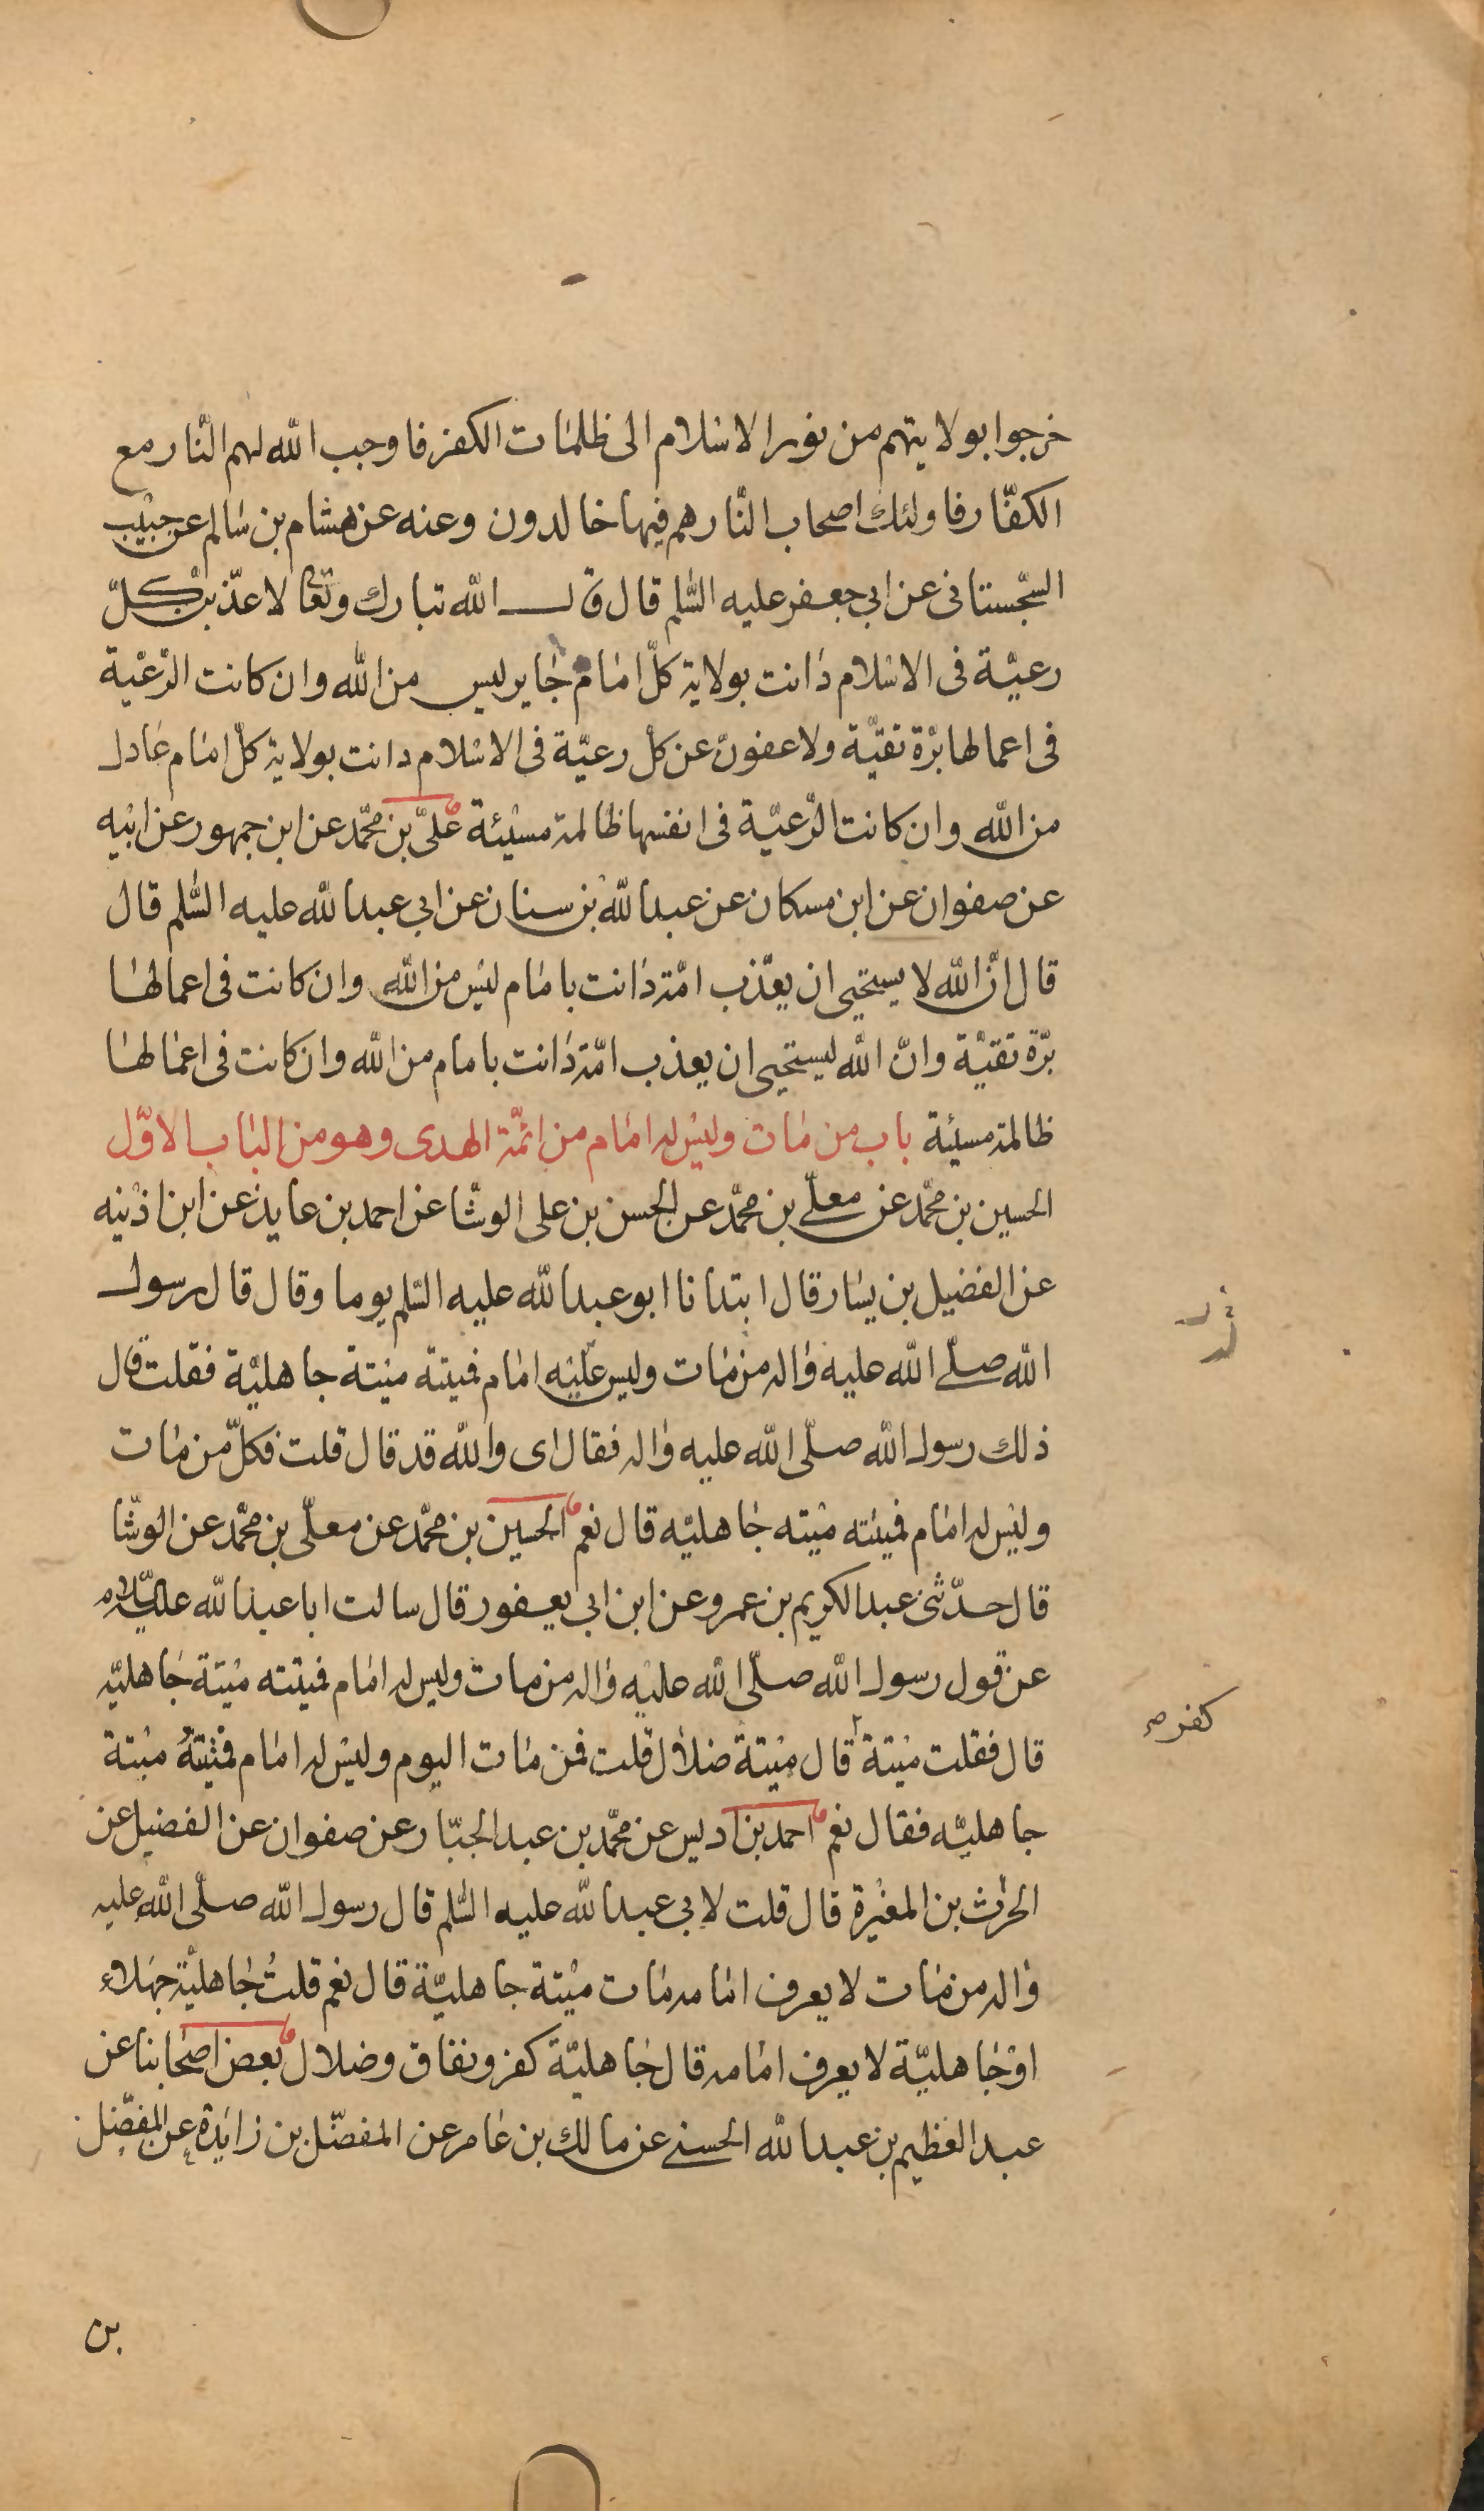 خرجوا بولايتهم من نور الاسلام الى ظلمات الكفر فاوجب الله لهم النّار مع
الكفّار فاولئك اصحاب النّار هم فيها خالدون وعنه عن هشام بن سالم عن حبيب
السّجستانى عن ابى جعفر عليه السّلم قال قال الله تبارك وتعالى لاعذّبنّ كلّ
رعيّة فى الاسلام دانت بولاية كلّ امام جاير ليس من الله وان كانت الرّعيّة
فى اعمالها برّة تقيّة ولاعفونّ عن كلّ رعيّة فى الاسلام دانت بولاية كلّ امام عادل
من الله وان كانت الرّعيّة فى انفسها ظالمة مسيئة علىّ بن محمّد عن ابن جمهور عن ابيه
عن صفوان عن ابن مسكان عن عبدالله بن سنان عن ابى عبدالله عليه السّلم قال
قال انّ الله لا يستحيى ان يعذّب امّة دانت بامام ليس من الله وان كانت فى اعمالها
برّة تقيّة وانّ الله ليستحيى ان يعذب امّة دانت بامام من الله وان كانت فى اعمالها
ظالمة مسيئة باب من مات وليس له امام من ائمّة الهدى وهو من الباب الاوّل
الحسين بن محمّد عن معلّى بن محمّد عن الحسن بن على الوشّا عن احمد بن عايذ عن ابن اذينه
عن الفضيل بن يسار قال ابتدانا ابو عبدالله عليه السّلم يوما وقال قال رسول
الله صلّى الله عليه واله من مات وليس عليه امام فميتته ميتة جاهليّة فقلت قال
ذلك رسول الله صلّى الله عليه واله فقال اى والله قد قال قلت فكلّ من مات
وليس له امام فميتته ميته جاهليّه قال نعم الحسين بن محمّد عن معلّى بن محمّد عن الوشّا
قال حدّثنى عبد الكريم بن عمرو عن ابن ابى يعفور قال سالت ابا عبدالله عليه السلام
عن قول رسول الله صلّى الله عليه واله من مات وليس له امام فميتته ميتة جاهليّه
قال فقلت ميتة قال ميتة ضلال قلت فمن مات اليوم وليس له امام فميتتهُ ميتة
كفر صح
جاهليّه فقال نعم احمد بن ادريس عن محمّد بن عبد الجبّار عن صفوان عن الفضيل عن
الحرث بن المغيرة قال قلت لابى عبدالله عليه السّلم قال رسول الله صلّى الله عليه
واله من مات لا يعرف امامه مات ميتة جاهليّة قال نعم قلتُ جاهليّة جهلاء
او جاهليّة لا يعرف امامه قال جاهليّة كفر ونفاق وضلال بعض اصحابنا عن
عبد العظيم بن عبدالله الحسنى عن مالك بن عامر عن المفضّل بن زايدة عن المفضّل
بن